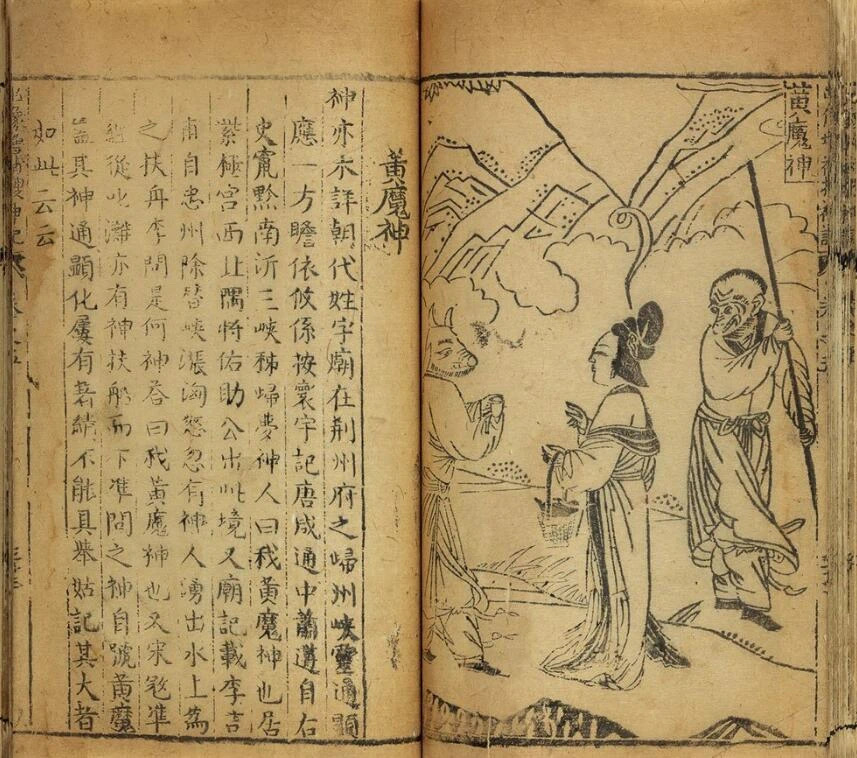 黃魔神
黃魔神
神亦未詳朝代姓字廟在荆州府之歸州峽靈通顯
應一方瞻依攸係按寰宇記唐咸通中蕭遘自右
史竄黔南泝三峽秭歸夢神人曰我黃魔神也居
紫極宮西北隅將佑助公出此境又廟記載李吉
甫自忠州除替峽漲洶怒忽有神人湧出水上爲
之扶舟李問是何神荅曰我黃魔神也又宋寇準
經從叱灘亦有神扶船而下準問之神自號黃魔
葢其神通顯化屢有著績不能具舉姑記其大者
如此云云